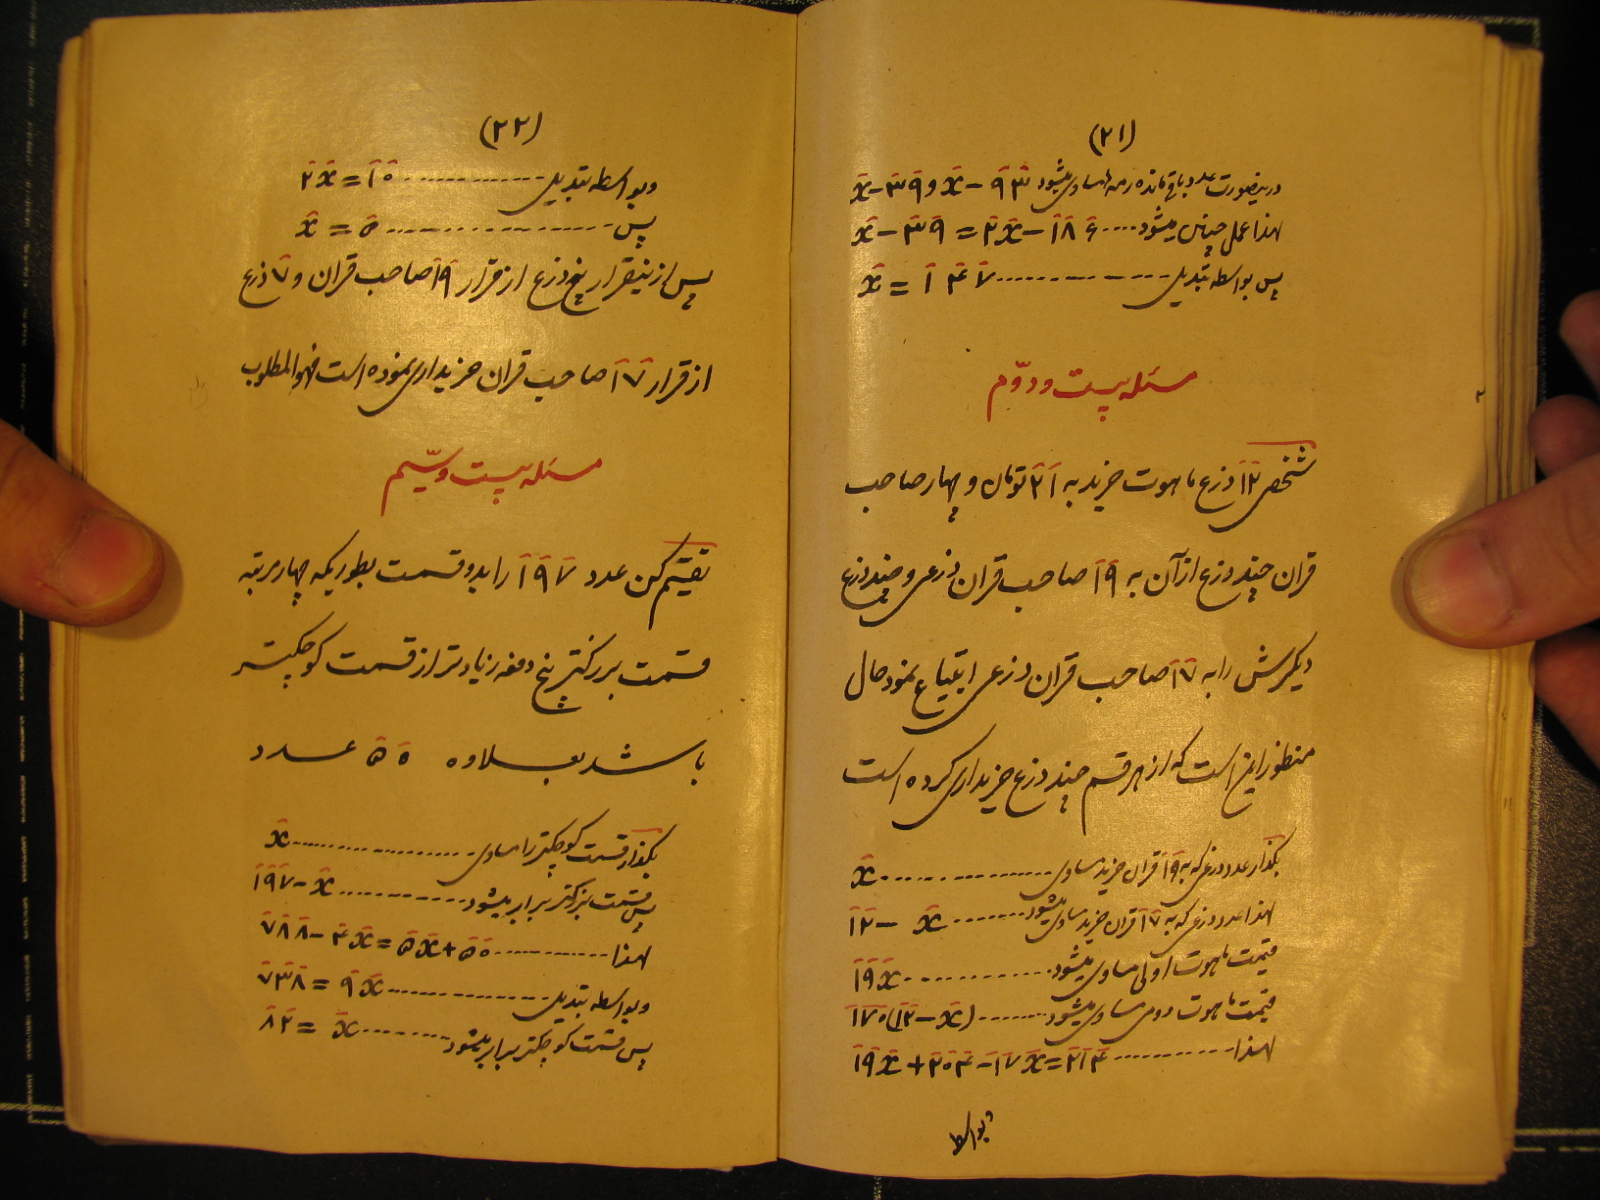 (۲۱)
درینصورت عدد باقیمانده رمه مساوی میشود x-۳۹ و x-۹۳
لهذا عمل چنین میشود ..... x-۳۹=۲x-۱۸۶
پس بواسطه تبدیل ............ x=۱۴۷
مسئله بیست و دوّم
شخصی ۱۲ ذرع ماهوت خرید به ۲۱ تومان و چهار صاحب
قران چند ذرع از آن به ۱۹ صاحب قران ذرعی و چند ذرع
دیگرش را به ۱۷ صاحب قران ذرعی ابتیاع نمود حال
منظور این است که از هر قسم چند ذرع خریداری کرده است
بگذار عدد ذرعی که به ۱۹ قران خرید مساوی ............ x
لهذا عدد ذرعی که به ۱۷ قران خرید مساوی میشود ........ ۱۲-x
قیمت ماهوت اولی مساوی میشود ............ ۱۹x
قیمت ماهوت دومی مساوی میشود ........ ۱۷۰(۱۲-x)
لهذا ............ ۱۹x+۲۰۴-۱۷x=۲۱۴
وبواسطه
(۲۲)
وبواسطه تبدیل ............ ۲x=۱۰
پس ............ x=۵
پس ازینقرار پنج ذرع از قرار ۱۹ صاحب قران و ۷ ذرع
از قرار ۱۷ صاحب قران خریداری نموده است فهو المطلوب
مسئله بیست و سیّم
تقسیم کن عدد ۱۹۷ را بدو قسمت بطوریکه چهار مرتبه
قسمت بزرگتر پنج دفعه زیادتر از قسمت کوچکتر
باشد بعلاوه ۵۰ عدد
بگذار قسمت کوچکتر را مساوی ............ x
پس قسمت بزرگتر برابر میشود ............ ۱۹۷-x
لهذا ............ ۷۸۸-۴x=۵x+۵۰
وبواسطه تبدیل ............ ۷۳۸=۹x
پس قسمت کوچکتر برابر میشود ........ ۸۲=x